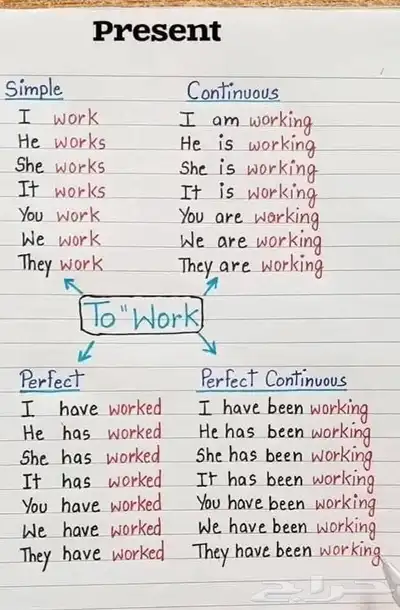 Present
Simple
I work
He works
She works
It works
You work
We work
They work
Continuous
I am working
He is working
She is working
It is working
You are working
We are working
They are working
To "Work
Perfect
I have worked
He has worked
She has worked
It has worked
You have worked
We have worked
They have worked
Perfect Continuous
I have been working
He has been working
She has been working
It has been working
You have been working
We have been working
They have been working
حراج